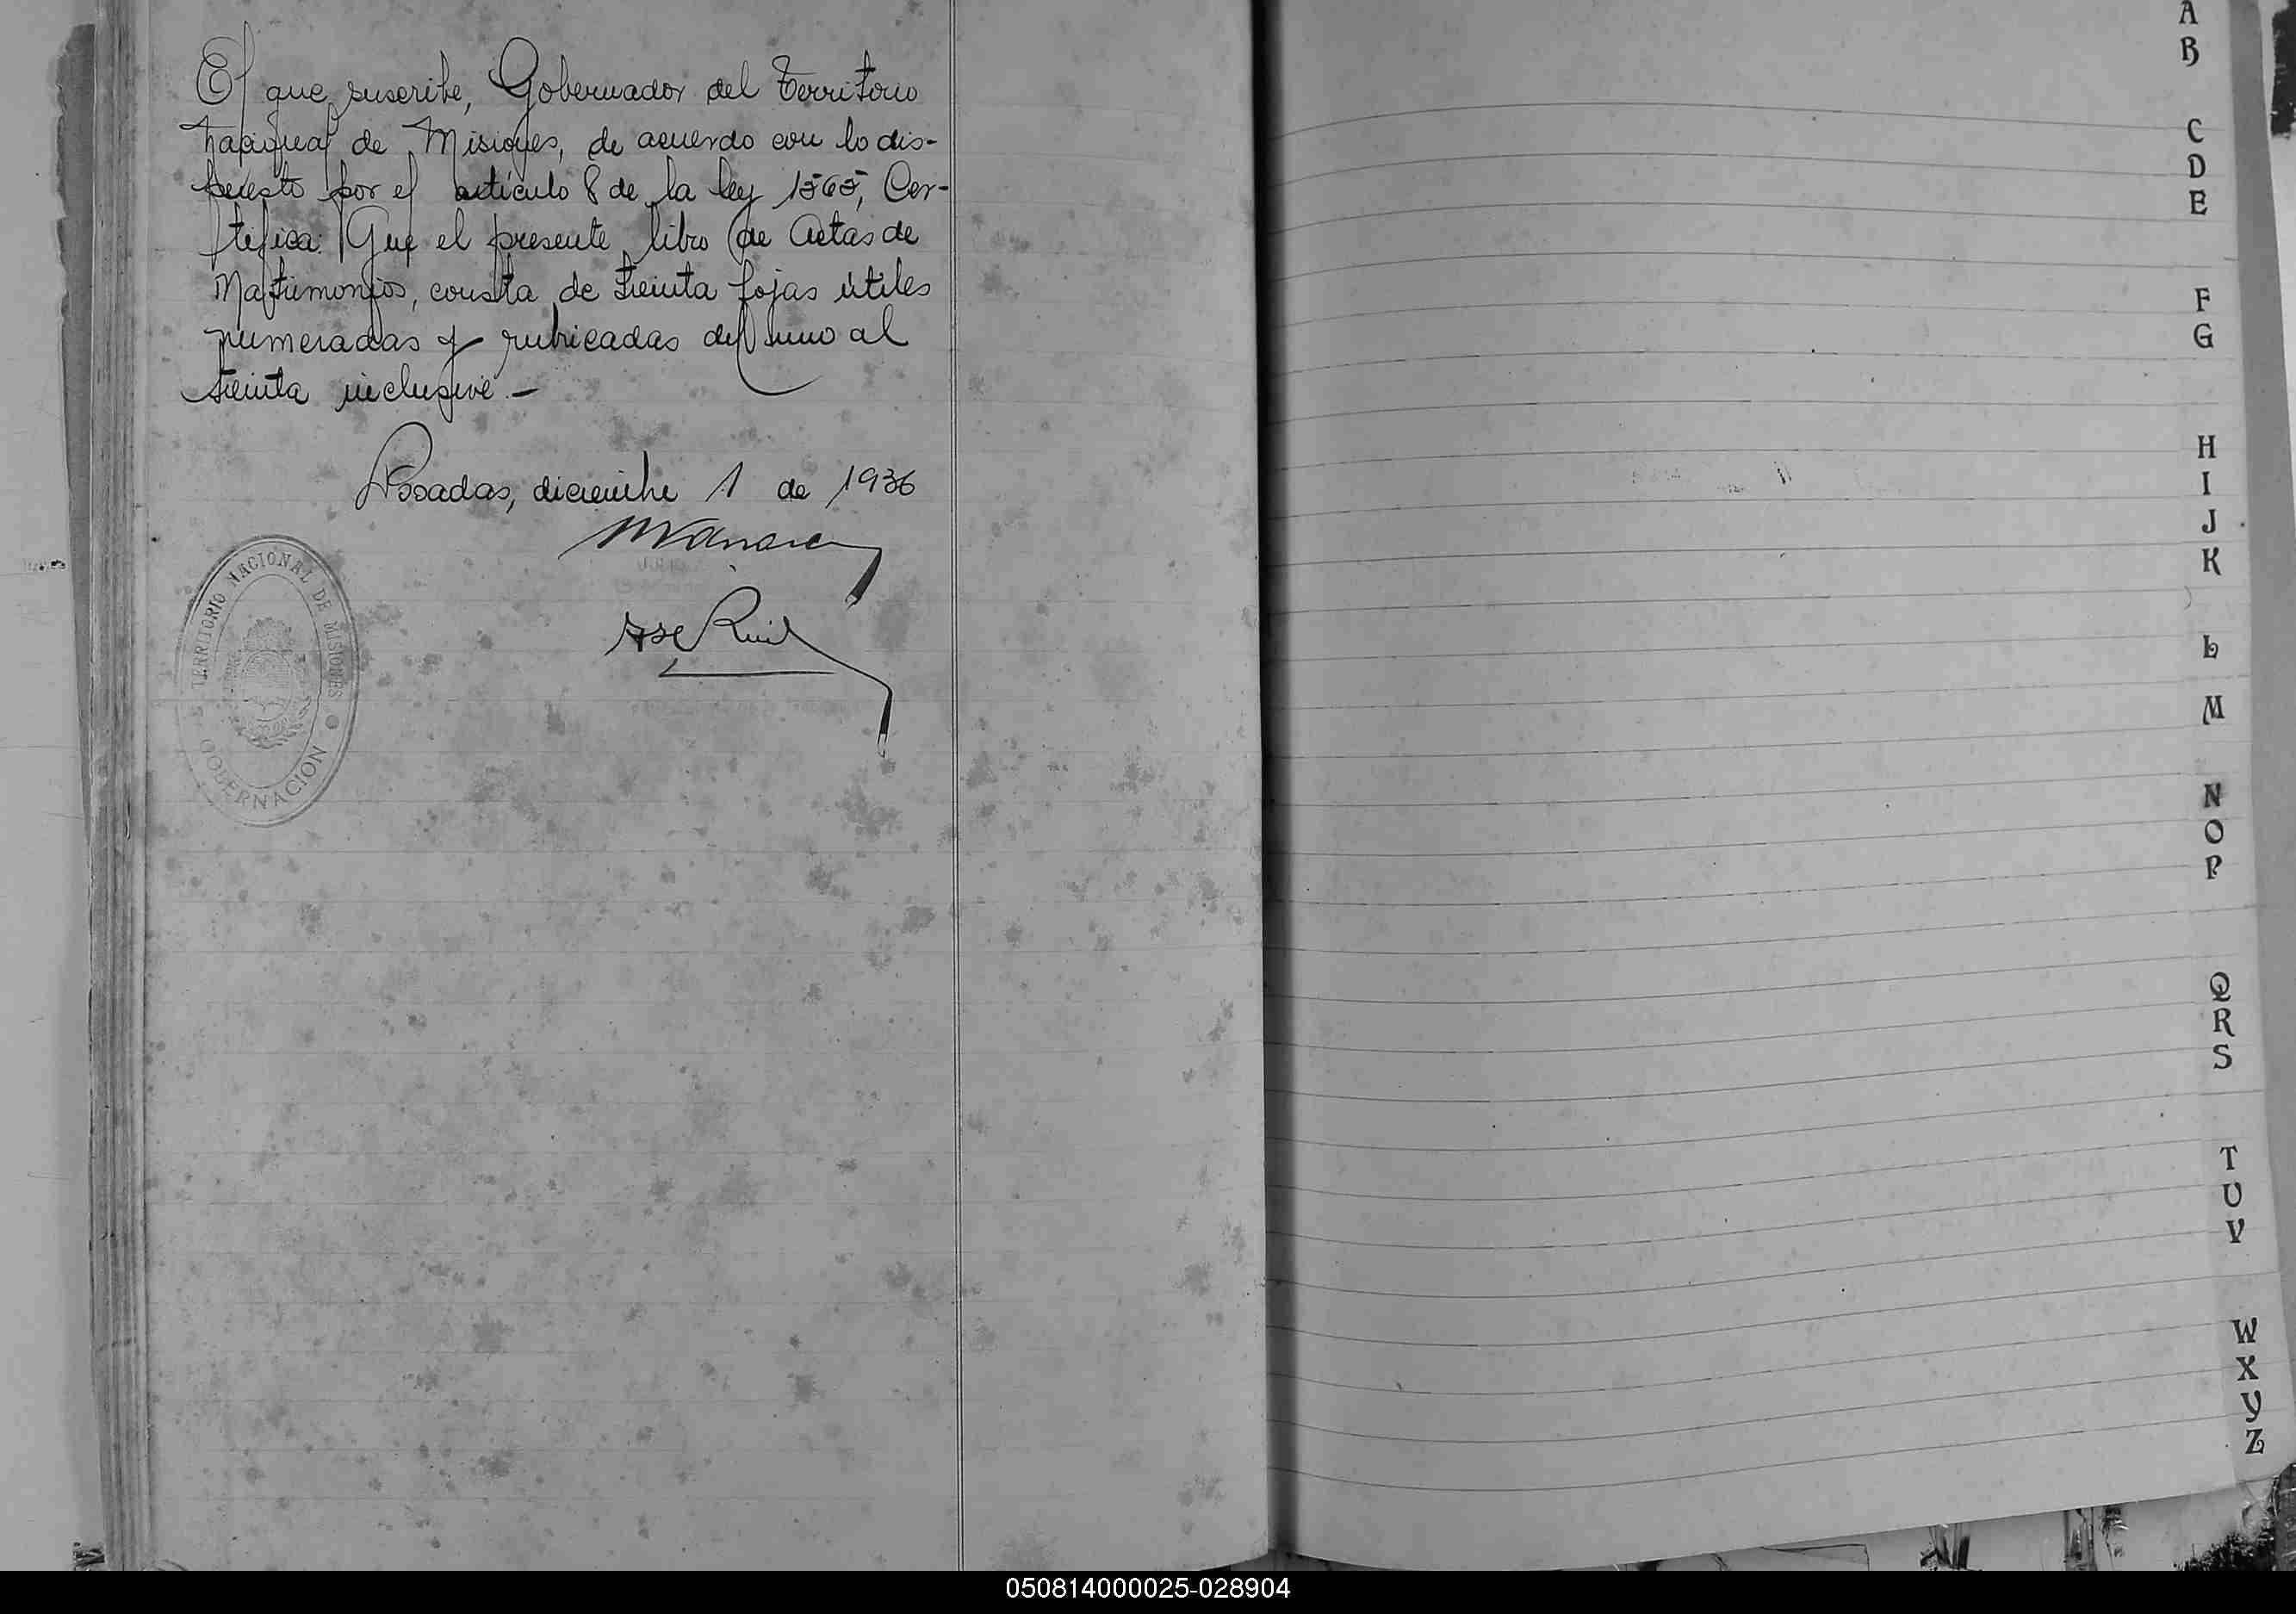 El que suscribe, Gobernador del Territorio
Nacional de Misiones, de acuerdo con lo dis-
puesto por el artículo 8 de la ley 1565, Cer-
tifica: Que el presente libro de Actas de
Matrimonios, consta de treinta fojas útiles
numeradas y rubricadas del uno al
treinta inclusive.—
Posadas, diciembre 1 de 1936
TERRITORIO NACIONAL DE MISIONES
GOBERNACION
A
B
C
D
E
F
G
H
I
J
K
L
M
N
O
P
Q
R
S
T
U
V
W
X
Y
Z
050814000025-028904